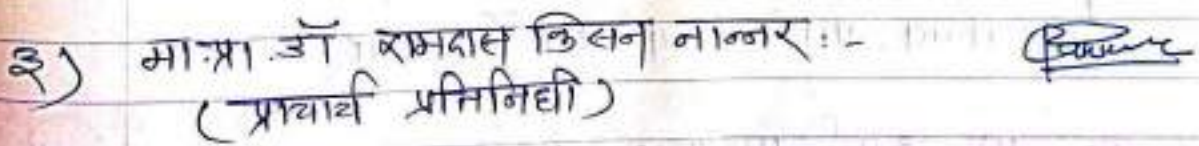 ३) मा.प्रा.डॉ रामदास किसन नान्नर :-
(प्राचार्य प्रतिनिधी)